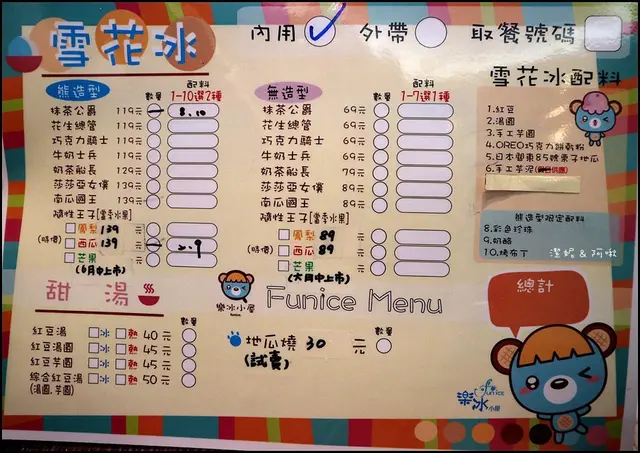 雪花冰
內用 外帶 取餐號碼
熊造型 數量 配料 1-10選2種
抹茶公爵 119元 8.10
花生總管 119元
巧克力騎士 119元
牛奶士兵 119元
奶茶船長 129元
莎莎亞女僕 139元
南瓜國王 139元
隨性王子[當季水果]
鳳梨 139
(時價) 西瓜 139 元 2.9
芒果
(6月中上市)
無造型 數量 配料 1-7選1種
抹茶公爵 69元
花生總管 69元
巧克力騎士 69元
牛奶士兵 69元
奶茶船長 79元
莎莎亞女僕 89元
南瓜國王 89元
隨性王子[當季水果]
鳳梨 89
(時價) 西瓜 89 元
芒果
(六月中上市)
雪花冰配料
1.紅豆
2.湯圓
3.手工芋圓
4.OREO巧克力餅乾粉
5.日本御東85號栗子地瓜
6.手工芋泥
熊造型限定配料
8.彩色珍珠
9.奶酪
10.烤布丁
潔媽 & 阿啾
甜湯
樂冰小屋
Funice Menu
總計
數量
紅豆湯 冰 熱 40 元
紅豆湯圓 冰 熱 45 元
紅豆芋圓 冰 熱 45 元
綜合紅豆湯 冰 熱 50 元
(湯圓.芋圓)
數量
地瓜燒 30 元
(試賣)
樂冰小屋 Funice